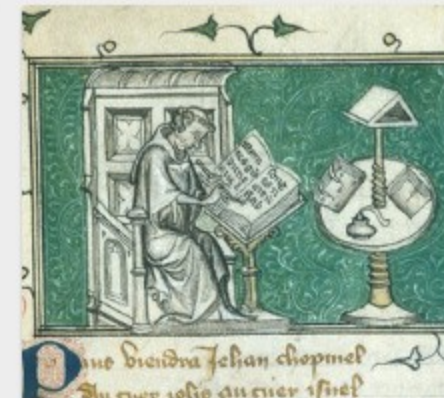 Puis viendra Jehan chopinel
Au cuer jolis au cuer isnel